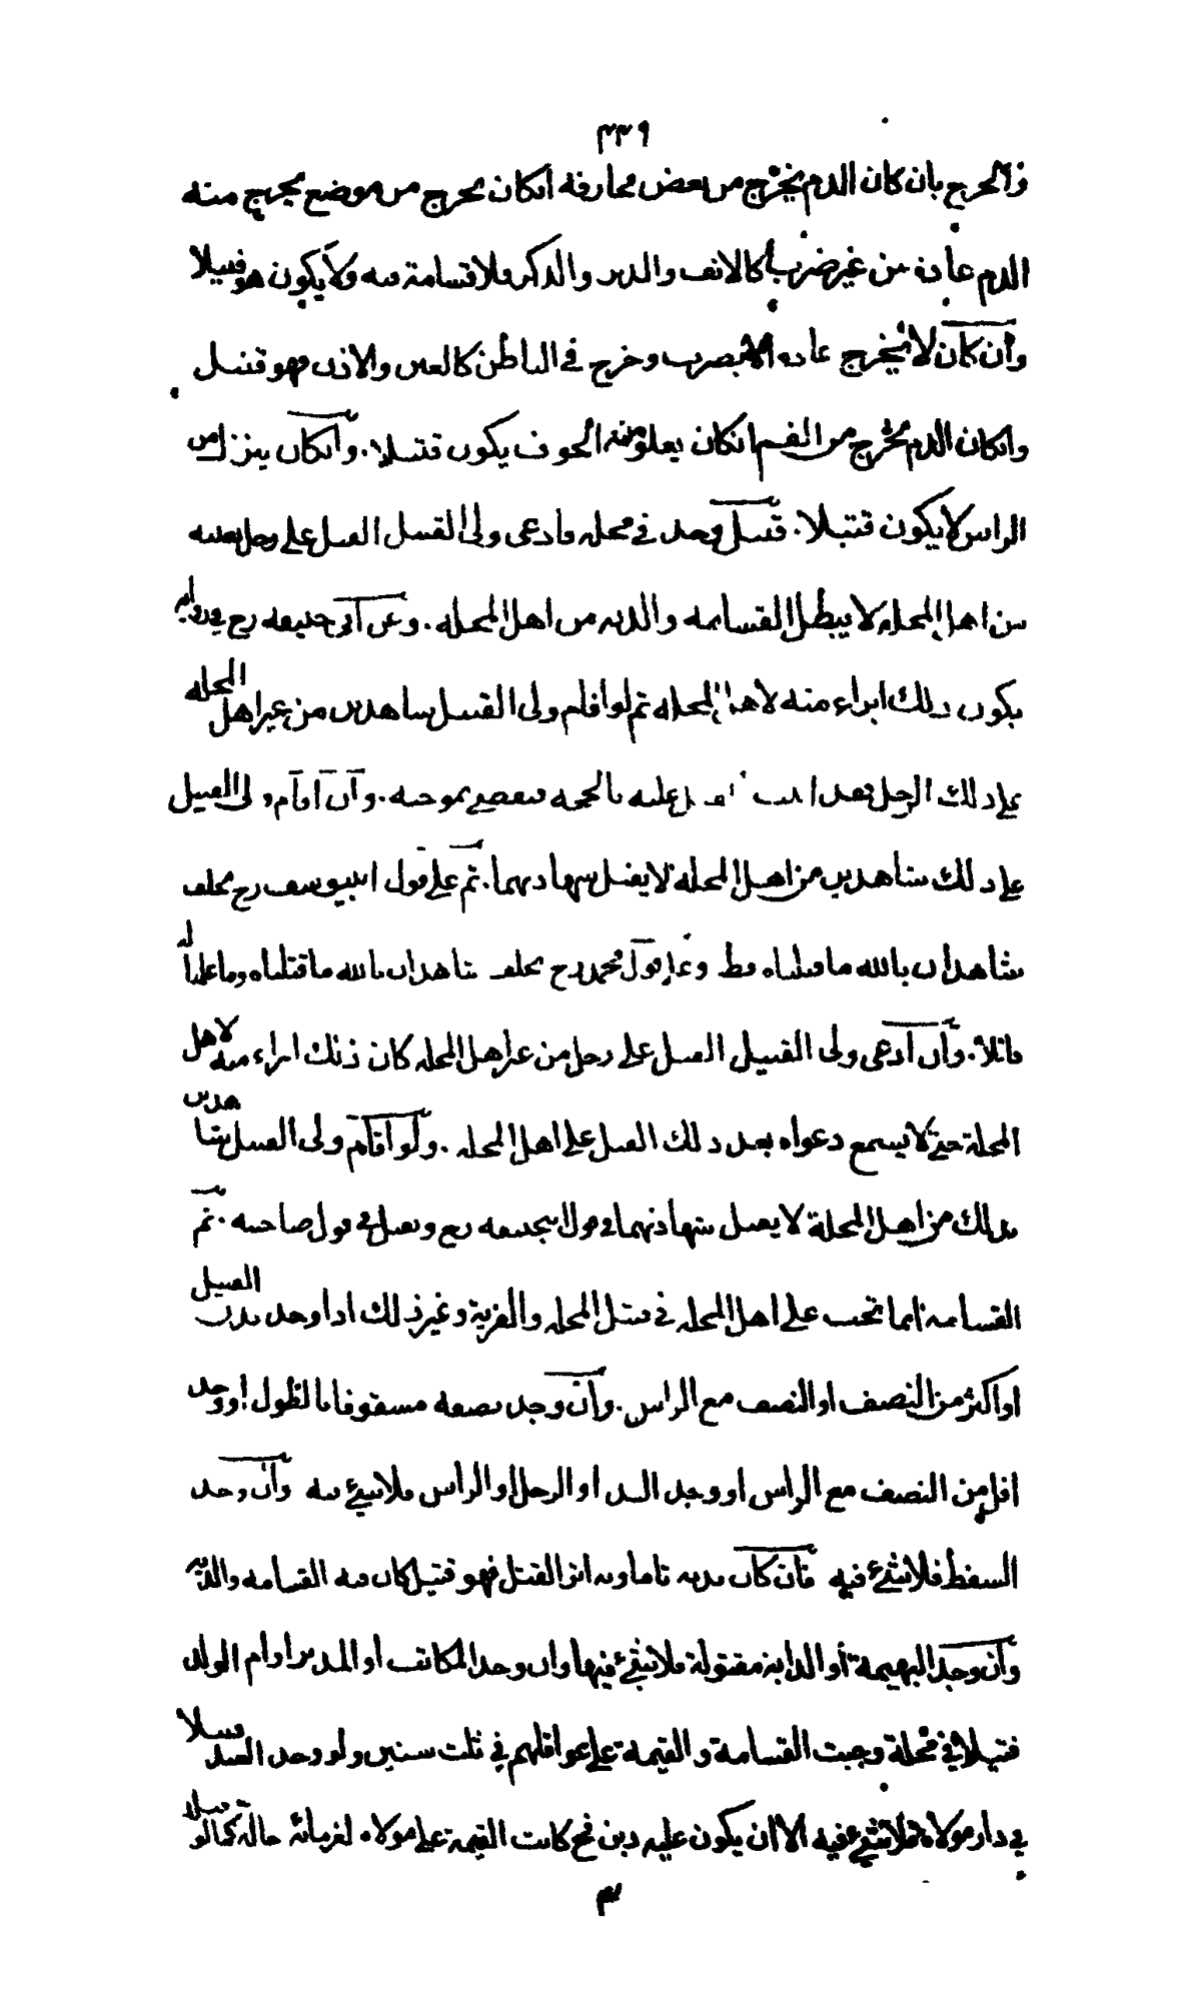 ٣٣٩
والجرح بان كان الدم يخرج من بعض مخارقه انكان يخرج من موضع يخرج منه
الدم عادة من غير ضرب كالانف والدبر والذكر فلا قسامة فيه ولا يكون هو قتيلا
وان كان لا يخرج عادة الا بضرب وخرج في الباطن كالعين والاذن فهو قتيل
وانكان الدم يخرج من الفم انكان يعلو منه الجوف يكون قتيلا. وانكان ينزل من
الراس لا يكون قتيلا. قتيل وجد في محلة فادعى ولى القتيل القتل على رجل بعينه
من اهل المحله لا يبطل القسامه والديه من اهل المحله. وعن ابي حنيفه رح في رواية
يكون ذلك ابراء منه لاهل المحله ثم لو اقام ولى القتيل شاهدين من غير اهل المحله
على ذلك الرجل بعد عليه بالحجه فيقضى بموجبه. وان اقام ولى القتيل
على ذلك شاهدين من اهل المحلة لا يقبل شهادتهما. ثم على قول ابييوسف رح يحلف
شاهدان بالله ما قتلناه فقط وعلى قول محمد رح يحلف شاهدان بالله ما قتلناه وما علمنا له
قاتلا. وان ادعى ولى القتيل القتل على رجل من غير اهل المحله كان ذلك ابراء منه لاهل
المحلة حتى لا يسمع دعواه بعد ذلك القتل على اهل المحله. ولو اقام ولى القتيل شاهدين
بذلك من اهل المحلة لا يقبل شهادتهما في قول ابيحنيفه رح ويقبل في قول صاحبيه. ثم
القسامه انما تجب على اهل المحله في قتيل المحله والقرية وغير ذلك اذا وجد بدن القتيل
او اكثر من النصف او النصف مع الراس. وان وجد نصفه مشقوقا بالطول او وجد
اقل من النصف مع الراس او وجد اليد او الرجل او الراس فلا شيء فيه وان وجد
السقط فلا شيء فيه فان كان بدنه تاما وبه اثر القتل فهو قتيل كان فيه القسامه والديه
وان وجد البهيمة أو الدابة مقتولة فلا شيء فيها وان وجد المكاتب او المدبر او ام الولد
قتيلا في محلة وجبت القسامة والقيمة على عواقلهم في ثلث سنين ولو وجد العبد قتيلا
في دار مولاه فلا شيء فيه الا ان يكون عليه دين فح كانت القيمة على مولاه لغرمائه حالة كما لو